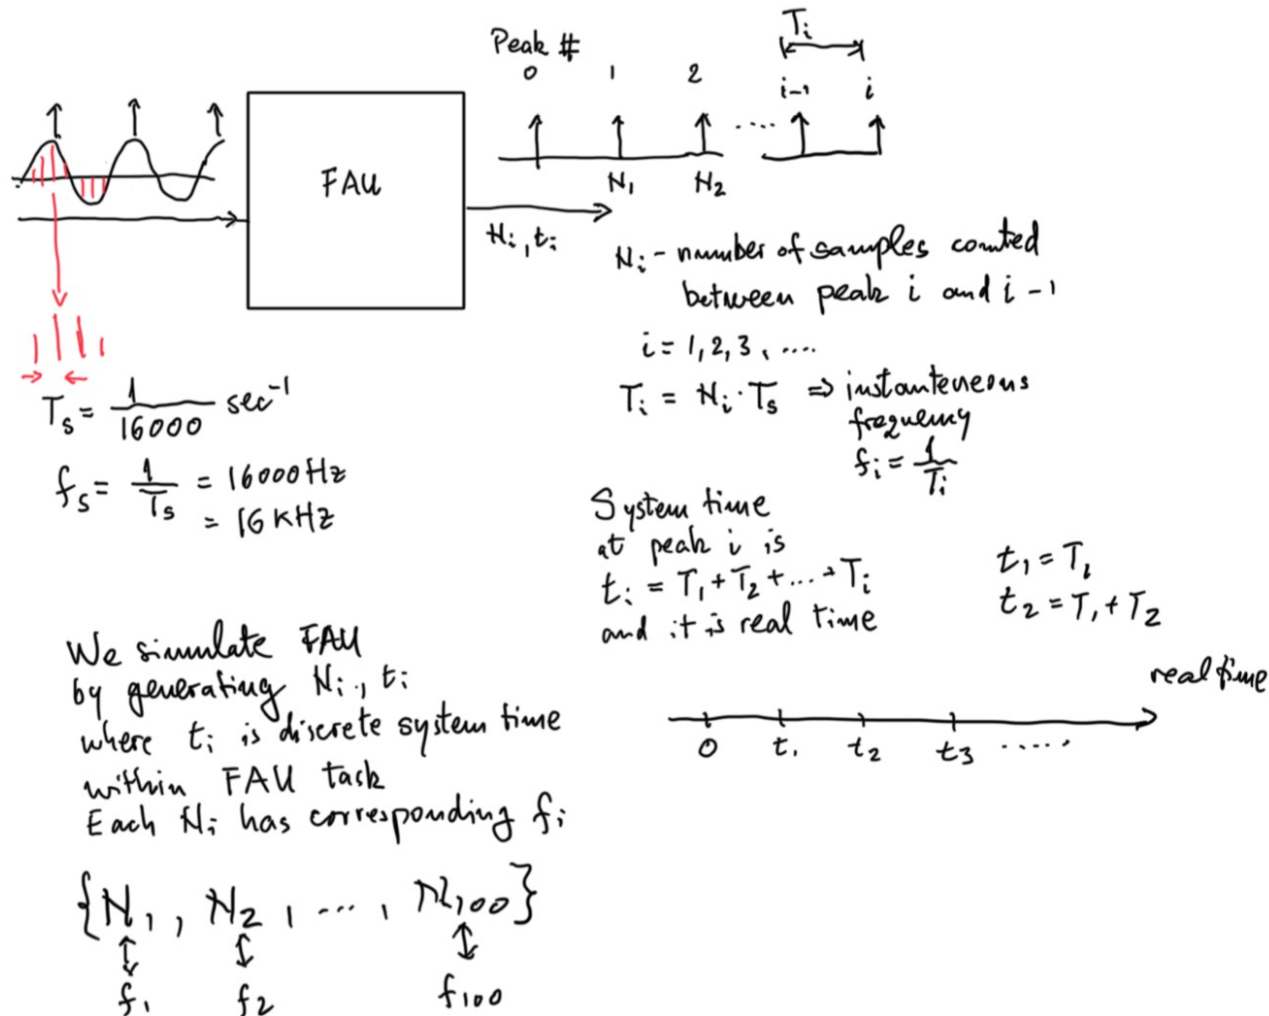 Peak #
0 1 2 i-1 i
Ti
N1 N2
FAU
Ni, ti
Ni - number of samples counted
between peak i and i-1
i = 1, 2, 3, ....
Ti = Ni · Ts ⇒ instanteneous
frequency
fi = 1/Ti
Ts = 1/16000 sec⁻¹
fs = 1/Ts = 16000 Hz
= 16 KHz
System time
at peak i is
ti = T1 + T2 + ... + Ti
and it is real time
t1 = T1
t2 = T1 + T2
real time
0 t1 t2 t3 .....
We simulate FAU
by generating Ni, ti
where ti is discrete system time
within FAU task
Each Ni has corresponding fi
{N1, N2, ..., N100}
f1 f2 f100